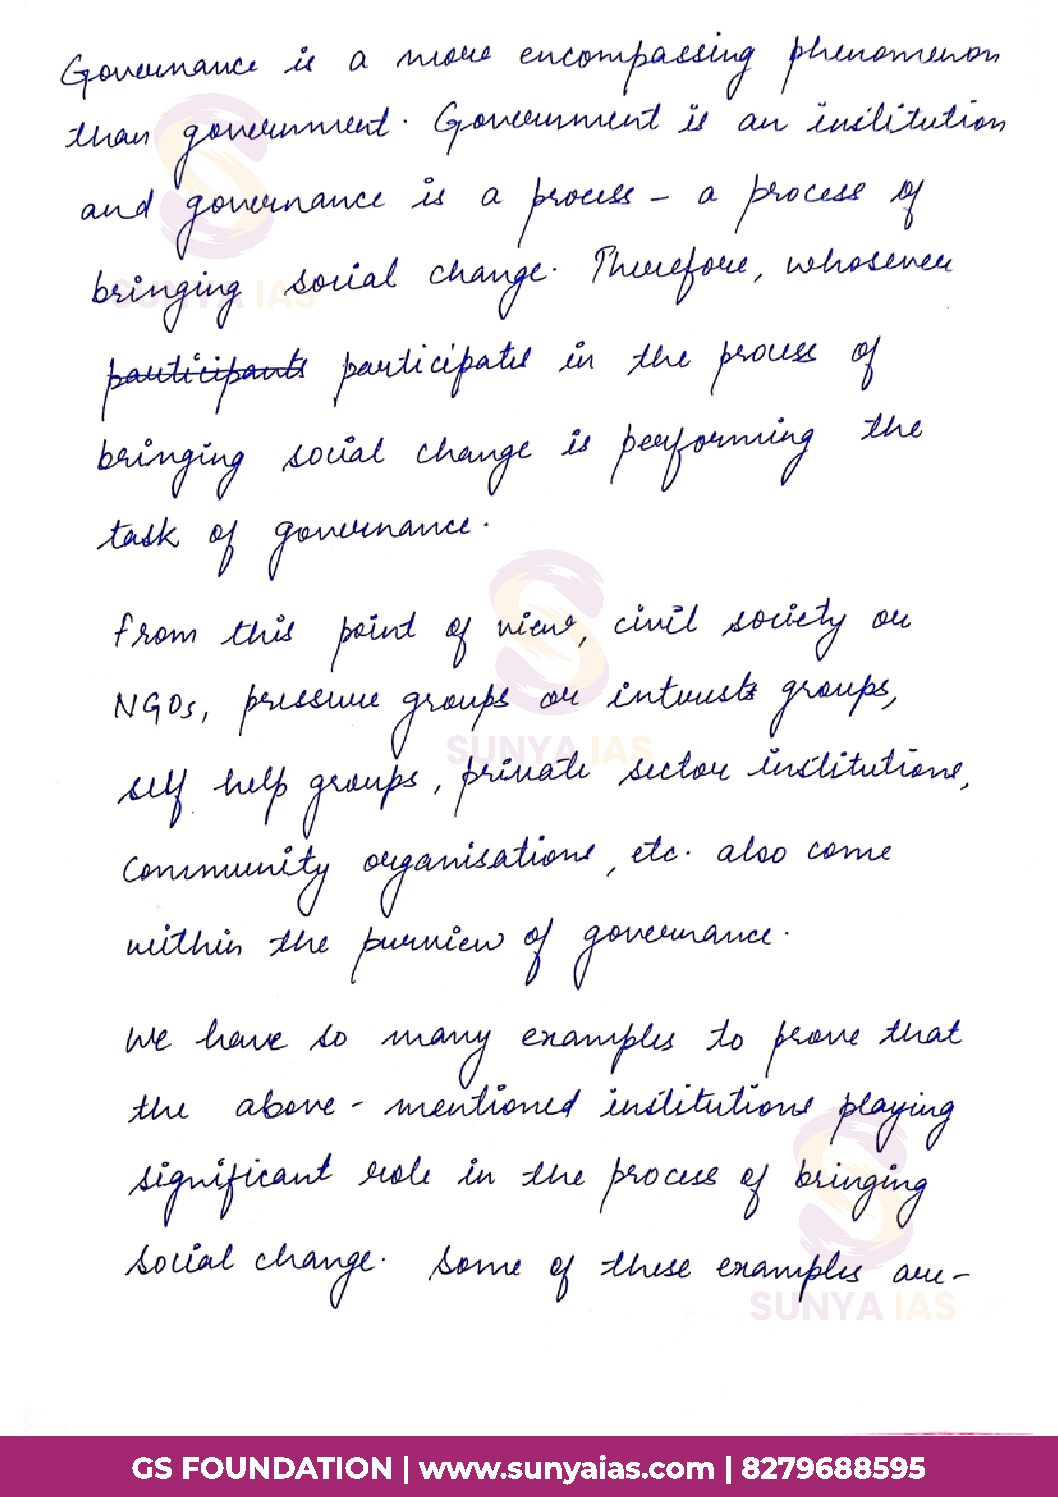 Governance is a more encompassing phenomenon
than government. Government is an institution
and governance is a process - a process of
bringing social change. Therefore, whosoever
participants participates in the process of
bringing social change is performing the
task of governance.
From this point of view, civil society or
NGOs, pressure groups or interests groups,
self help groups, private sector institutions,
Community organisations, etc. also come
within the purview of governance.
We have so many examples to prove that
the above-mentioned institutions playing
significant role in the process of bringing
social change. Some of these examples are-
SUNYA IAS
SUNYA IAS
SUNYA IAS
GS FOUNDATION | www.sunyaias.com | 8279688595